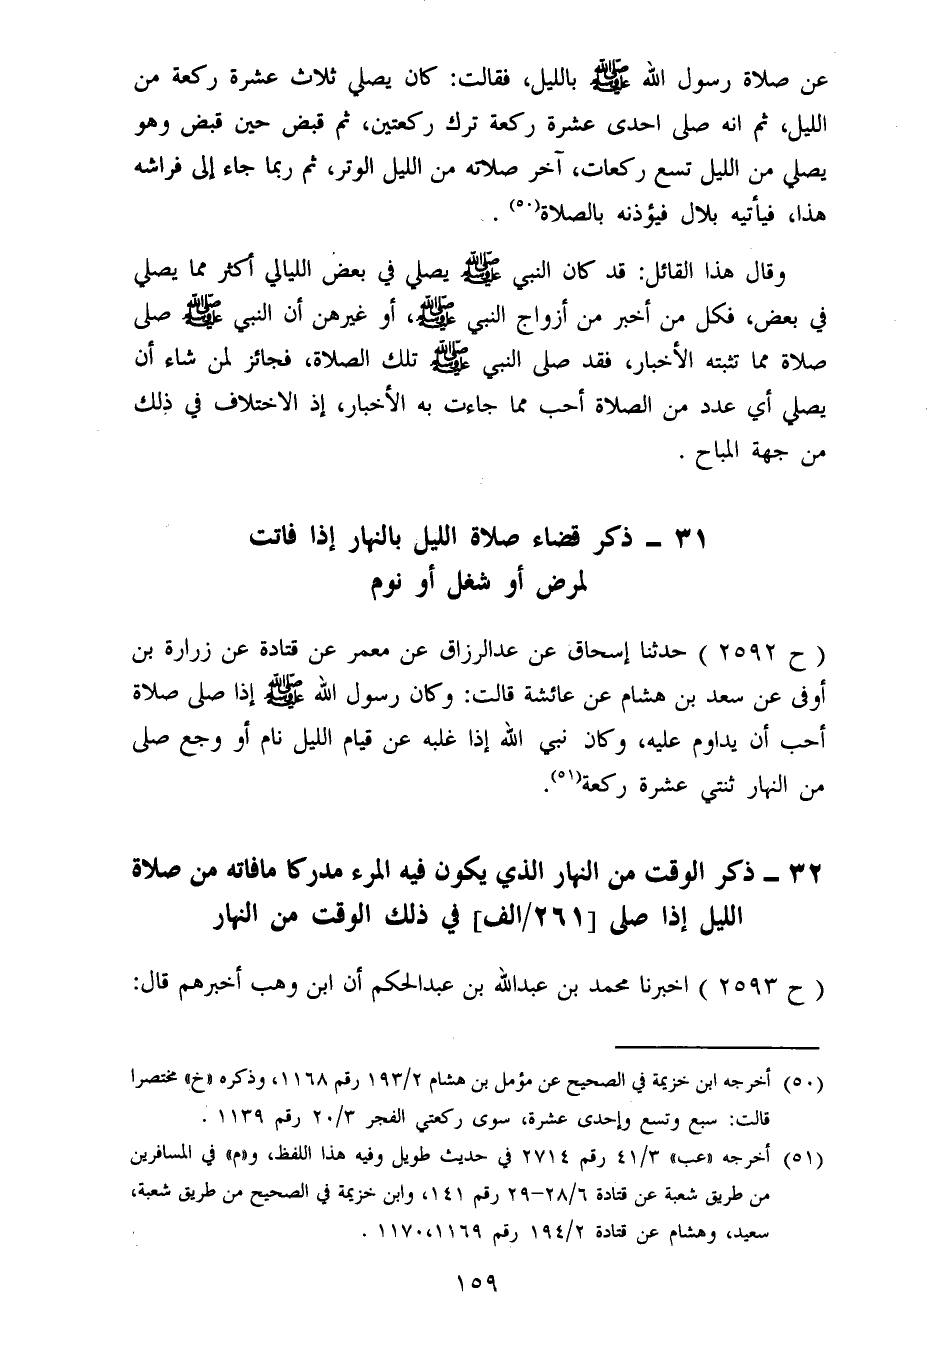 عن صلاة رسول الله ﷺ بالليل، فقالت: كان يصلي ثلاث عشرة ركعة من
الليل، ثم انه صلى احدى عشرة ركعة ترك ركعتين، ثم قبض حين قبض وهو
يصلي من الليل تسع ركعات، آخر صلاته من الليل الوتر، ثم ربما جاء إلى فراشه
هذا، فيأتيه بلال فيؤذنه بالصلاة(٥٠) .
وقال هذا القائل: قد كان النبي ﷺ يصلي في بعض الليالي أكثر مما يصلي
في بعض، فكل من أخبر من أزواج النبي ﷺ، أو غيرهن أن النبي ﷺ صلى
صلاة مما تثبته الأخبار، فقد صلى النبي ﷺ تلك الصلاة، فجائز لمن شاء أن
يصلي أي عدد من الصلاة أحب مما جاءت به الأخبار، إذ الاختلاف في ذلك
من جهة المباح .
٣١ ـ ذكر قضاء صلاة الليل بالنهار إذا فاتت
لمرض أو شغل أو نوم
( ح ٢٥٩٢ ) حدثنا إسحاق عن عدالرزاق عن معمر عن قتادة عن زرارة بن
أوفى عن سعد بن هشام عن عائشة قالت: وكان رسول الله ﷺ إذا صلى صلاة
أحب أن يداوم عليه، وكان نبي الله إذا غلبه عن قيام الليل نام أو وجع صلى
من النهار ثنتي عشرة ركعة(٥١).
٣٢ ـ ذكر الوقت من النهار الذي يكون فيه المرء مدركا مافاته من صلاة
الليل إذا صلى [٢٦١/الف] في ذلك الوقت من النهار
( ح ٢٥٩٣ ) اخبرنا محمد بن عبدالله بن عبدالحكم أن ابن وهب أخبرهم قال:
(٥٠) أخرجه ابن خزيمة في الصحيح عن مؤمل بن هشام ١٩٣/٢ رقم ١١٦٨، وذكره «خ» مختصرا
قالت: سبع وتسع وإحدى عشرة، سوى ركعتي الفجر ٢٠/٣ رقم ١١٣٩ .
(٥١) أخرجه «عب» ٤١/٣ رقم ٢٧١٤ في حديث طويل وفيه هذا اللفظ، و«م» في المسافرين
من طريق شعبة عن قتادة ٢٨/٦–٢٩ رقم ١٤١، وابن خزيمة في الصحيح من طريق شعبة،
سعيد، وهشام عن قتادة ١٩٤/٢ رقم ١١٦٩، ١١٧٠ .
١٥٩